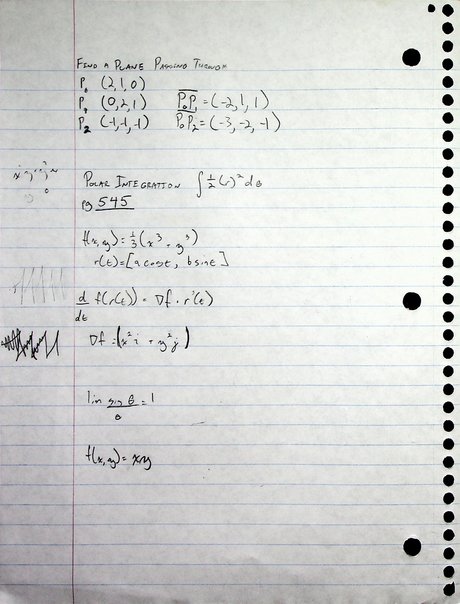 Find a Plane Passing Through
P₀ (2, 1, 0)
P₁ (0, 2, 1) P₀P₁ = (-2, 1, 1)
P₂ (-1, -1, -1) P₀P₂ = (-3, -2, -1)
Polar Integration ∫ ½(r)² dθ
pg 545
f(x, y) = ⅓(x³ + y³)
r(t) = [a cos t, b sin t]
d/dt f(r(t)) = ∇f · r'(t)
∇f = (x² i + y² j)
lim sin θ/θ = 1
f(x, y) = xy